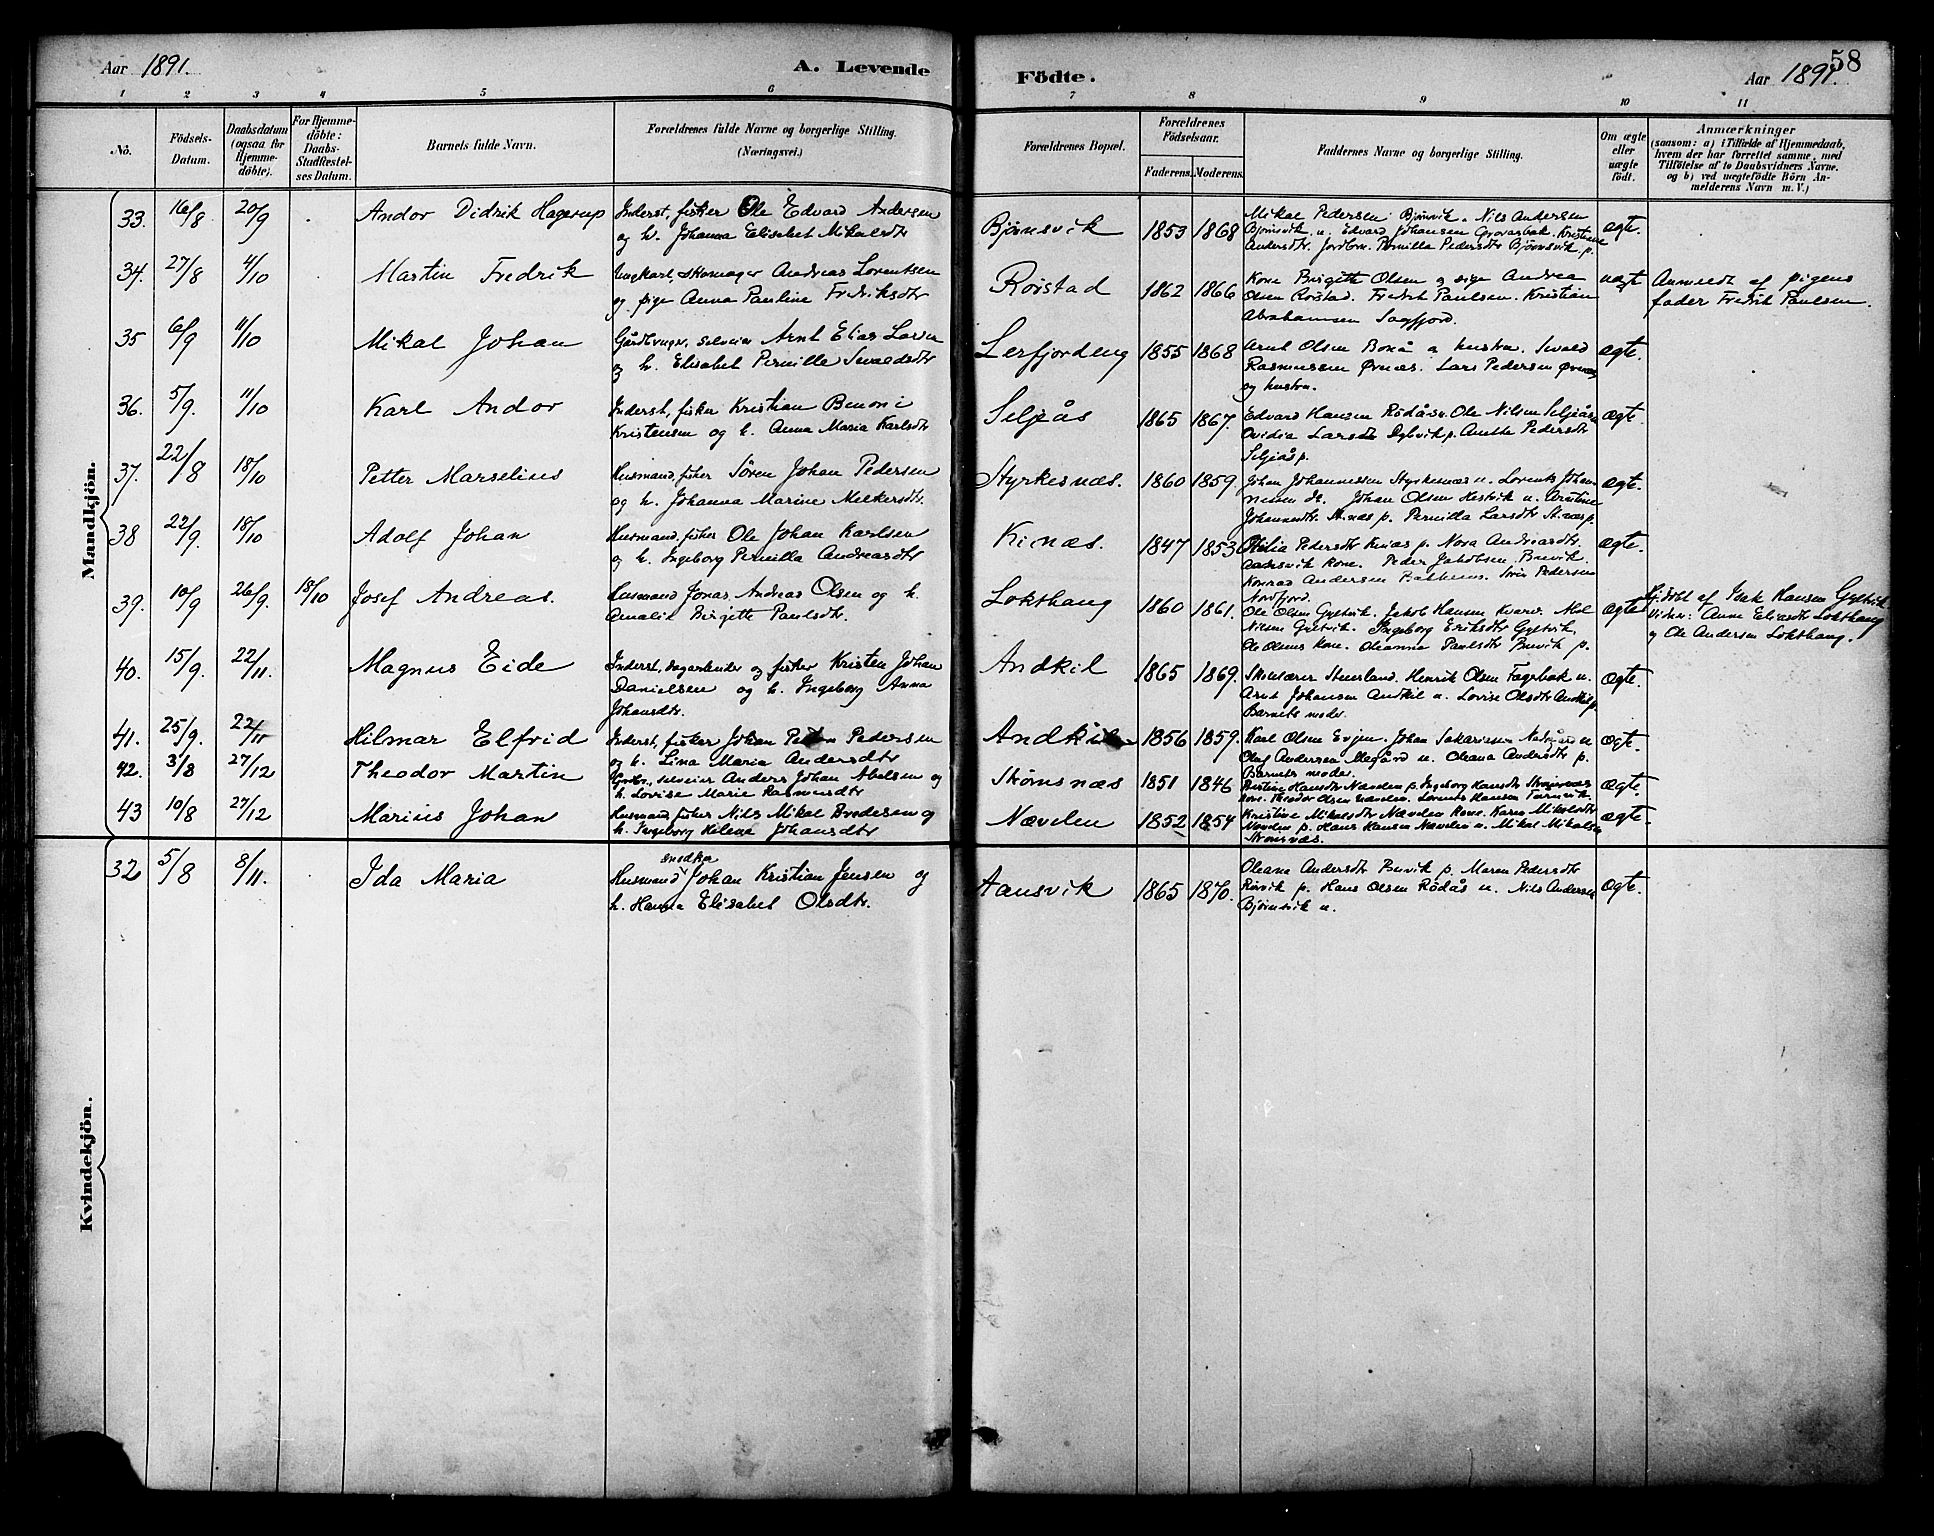 Aar 1891.
A. Levende
Födte.
Aar 1891.
58
1 2 3 4 5 6 7 8 9 10 11
No.
Födsels-Datum.
Daabsdatum (ogsaa for Hjemmedöbte).
For Hjemmedöbte: Daabs-Stadfæstelses Datum.
Barnets fulde Navn.
Forældrenes fulde Navne og borgerlige Stilling.
(Næringsvei.)
Forældrenes Bopæl.
Forældrenes Födselsaar.
Faderens. Moderens.
Faddernes Navne og borgerlige Stilling.
Om ægte eller uægte födt.
Anmærkninger
(saasom: a) i Tilfælde af Hjemmedaab, hvem der har forrettet samme, med Tilföielse af to Daabsvidners Navne, og b) ved uegtefödte Börn Anmelderens Navn m. V.)
Mandkjön.
33. 16/8 20/9 Andor Didrik Hagerup
Inderst, fisker Ole Edvard Andersen
og h. Johanna Elisabet Mikalsdtr
Bjørnsvik 1853 1868
Mikal Pedersen Bjørnsvik. Nils Andersen
Bjørnsvik u. Edvard Johansen Kristine
Andersdtr. Pernilla Pedersdtr Bjørnsvik p.
ægte.
34. 27/8 4/10 Martin Fredrik
Ungkarl, skomager Andreas Lorentsen
og pige Anna Pauline Fredriksdtr
Roistad 1862 1866
Kone Birgitte Olsen og pige Andrea
Olsen Roistad. Fredrik Paulsen. Kristian
Abrahamsen Sagfjord.
uægte
Anmeldt af pigens
fader Fredrik Paulsen.
35 6/9 11/10 Mikal Johan
Gårdbruger, selveier Arnt Elias Larsen
og h. Elisabet Pernille Sivaldsdtr
Lerfjordeng 1855 1868
Arnt Olsen Bonå og hustru. Sivald
Rasmussen Ørnæs. Lars Pedersen Ørnæs
og hustru.
ægte.
36. 5/9. 11/10 Karl Andor
Inderst, fisker Kristian Benoni
Kristensen og h. Anna Maria Karlsdtr
Seljeås 1865 1867.
Edvard Hansen Rödås u. Ole Nilsen Seljeås u.
Ovidia Larsdtr Dybvik p. Anette Pedersdtr
Seljeås p.
ægte.
37. 22/8 18/10 Petter Marselius
Husmand, fisker Sören Johan Pedersen
og h. Johanna Marine Meckersdtr.
Styrkesnæs. 1860 1859.
Johan Johannessen Styrkesnæs u. Lorents Johannesen
ds. Johan Olsen Hestvik u. Kristine
Johannesdtr. St.næs p. Pernilla Larsdtr St.næs p.
ægte.
38 22/9. 18/10 Adolf Johan
Husmand, fisker Ole Johan Karlsen
og h. Ingeborg Pernilla Andreasdtr
Kinæs. 1847 1853
Pedersdtr Kinæs p. Nora Andreasdtr.
Aansvik kone. Peder Jakobsen Buvik.
Konrad Andersen Bakhens. Sörен Pedersen
Nordfjord.
ægte.
39. 10/9 26/9. 18/10 Josef Andreas.
Husmand Jonas Andreas Olsen og h.
Amalia Birgitte Paulsdtr.
Lokthaug 1860 1861.
Ole Olsen Gyltvik. Jakob Hansen Kvarv.
Nilsen Gyltvik. Ingeborg Eriksdtr Gyltvik.
Ole Olsens kone. Oleanna Paulsdtr Buvik p.
ægte
Hj.döbt af Isak Hansen Gyltvik
Vidner: Anne Elisabet Lokthaug
og Ole Andersen Lokthaug.
40. 15/9. 22/11. Magnus Eide
Inderst, dagarbeider og fisker Kristen Johan
Danielsen og h. Ingeborg Anna
Johansdtr.
Andkil 1865 1869.
Henrik Olsen Fagerbak u.
Arnt Johansen Andkil u. Lovise Olsdtr Andkil p.
Barnets moder.
ægte.
41. 25/9. 22/11 Hilmar Elfrid
Inderst, fisker Johan Pedersen
og h. Lina Maria Andersdtr
Andkil 1856 1859.
Karl Olsen Evjen. Johan Sakariassen
Olaf Andersen u. Oleana Andersdtr p.
Barnets moder.
ægte.
42. 3/8 27/12 Theodor Martin
Grdbr., selveier Anders Johan Abelsen og
h. Lovise Marie Rasmusdtr
Skömsnæs 1851 1846
Kristine Hansdtr Nævelen p. Ingeborg Hansdtr Skömsnæs
kone. Theodor Olsen Nævelen. Lorents Hansen Tørnvik.
ægte.
43 10/8 27/12 Marius Johan
Husmand fisker Nils Mikal Brodersen og
h. Ingeborg Helene Johansdtr
Nævelen 1852 1854
Kristine Mikalsdtr Nævelen kone. Karen Mikalsdtr
Nævelen p. Hans Hansen Nævelen u. Mikal Mikalsen
Skömsnæs.
ægte.
Kvindekjön.
32 5/8 8/11. Ida Maria
snedker
Husmand Johan Kristian Jensen og
h. Hanna Elisabet Olsdtr.
Aansvik 1865 1870.
Oleana Andersdtr Buvik p. Maren Pedersdtr
Rörvik p. Hans Olsen Rödås u. Nils Andersen
Bjørnsvik u.
ægte.